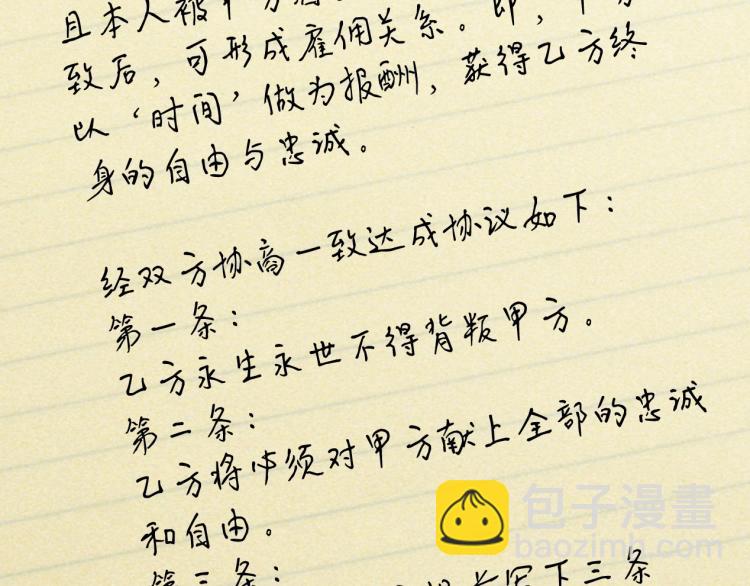 且本人被甲方
致后，可形成雇佣关系。即，甲方
以‘时间’做为报酬，获得乙方终
身的自由与忠诚。
经双方协商一致达成协议如下：
第一条：
乙方永生永世不得背叛甲方。
第二条：
乙方将必须对甲方献上全部的忠诚
和自由。
第三条：
下三条
包子漫畫
baozimh.com